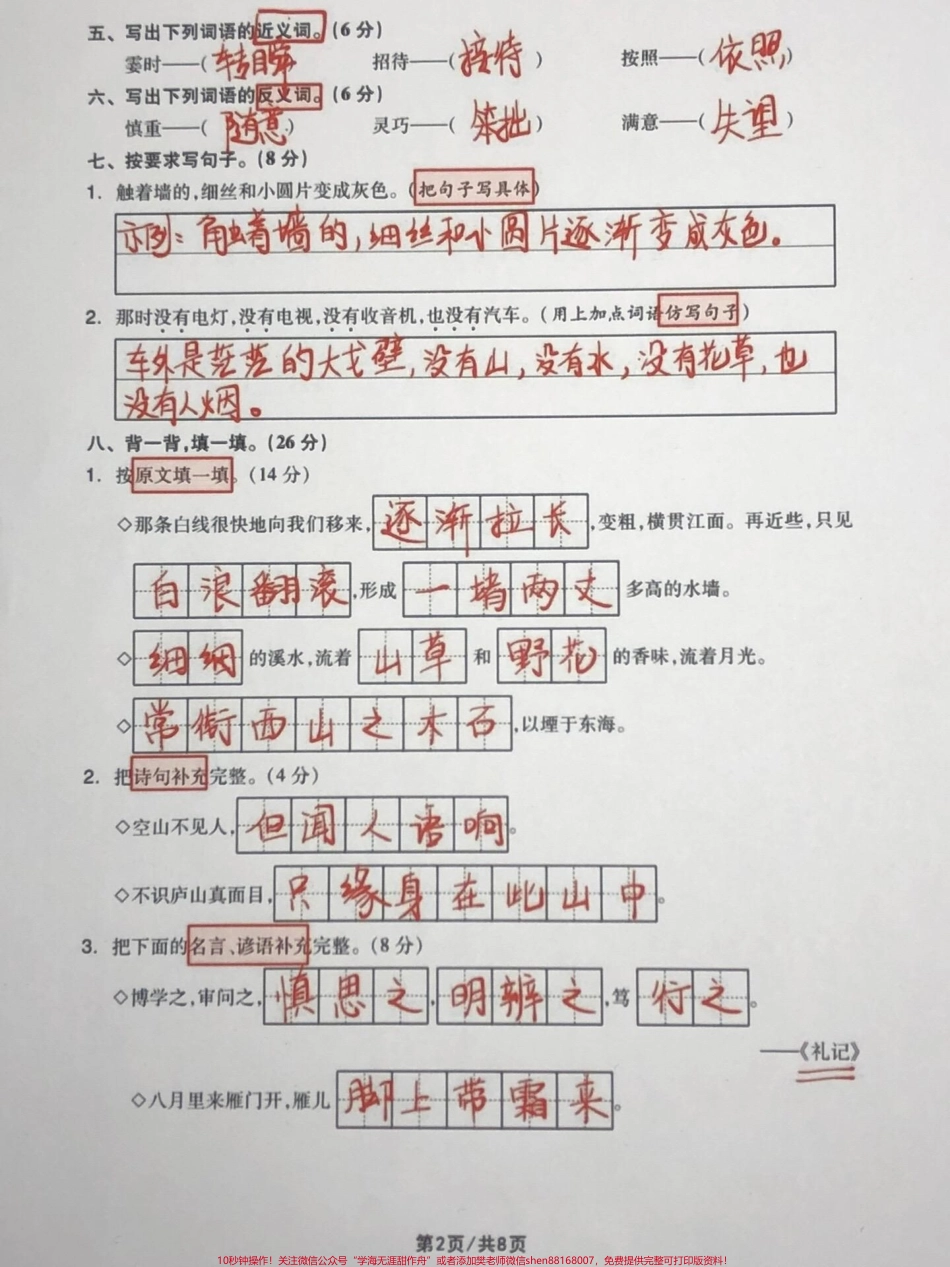 五、写出下列词语的近义词。(6分)
霎时——(转瞬) 招待——(接待) 按照——(依照)
六、写出下列词语的反义词。(6分)
慎重——(随意) 灵巧——(笨拙) 满意——(失望)
七、按要求写句子。(8分)
1. 触着墙的,细丝和小圆片变成灰色。(把句子写具体)
示例:触着墙的,细丝和小圆片逐渐变成灰色。
2. 那时没有电灯,没有电视,没有收音机,也没有汽车。(用上加点词语仿写句子)
车外是茫茫的大戈壁,没有山,没有水,没有花草,也
没有人烟。
八、背一背,填一填。(26分)
1. 按原文填一填。(14分)
◇那条白线很快地向我们移来,逐渐拉长,变粗,横贯江面。再近些,只见
白浪翻滚,形成一堵两丈多高的水墙。
◇细细的溪水,流着山草和野花的香味,流着月光。
◇常衔西山之木石,以堙于东海。
2. 把诗句补充完整。(4分)
◇空山不见人,但闻人语响。
◇不识庐山真面目,只缘身在此山中。
3. 把下面的名言、谚语补充完整。(8分)
◇博学之,审问之,慎思之,明辨之,笃行之。
——《礼记》
◇八月里来雁门开,雁儿脚上带霜来。
第2页/共8页
10秒钟操作!关注微信公众号“学海无涯甜作舟”或者添加樊老师微信shen88168007,免费提供完整可打印版资料!